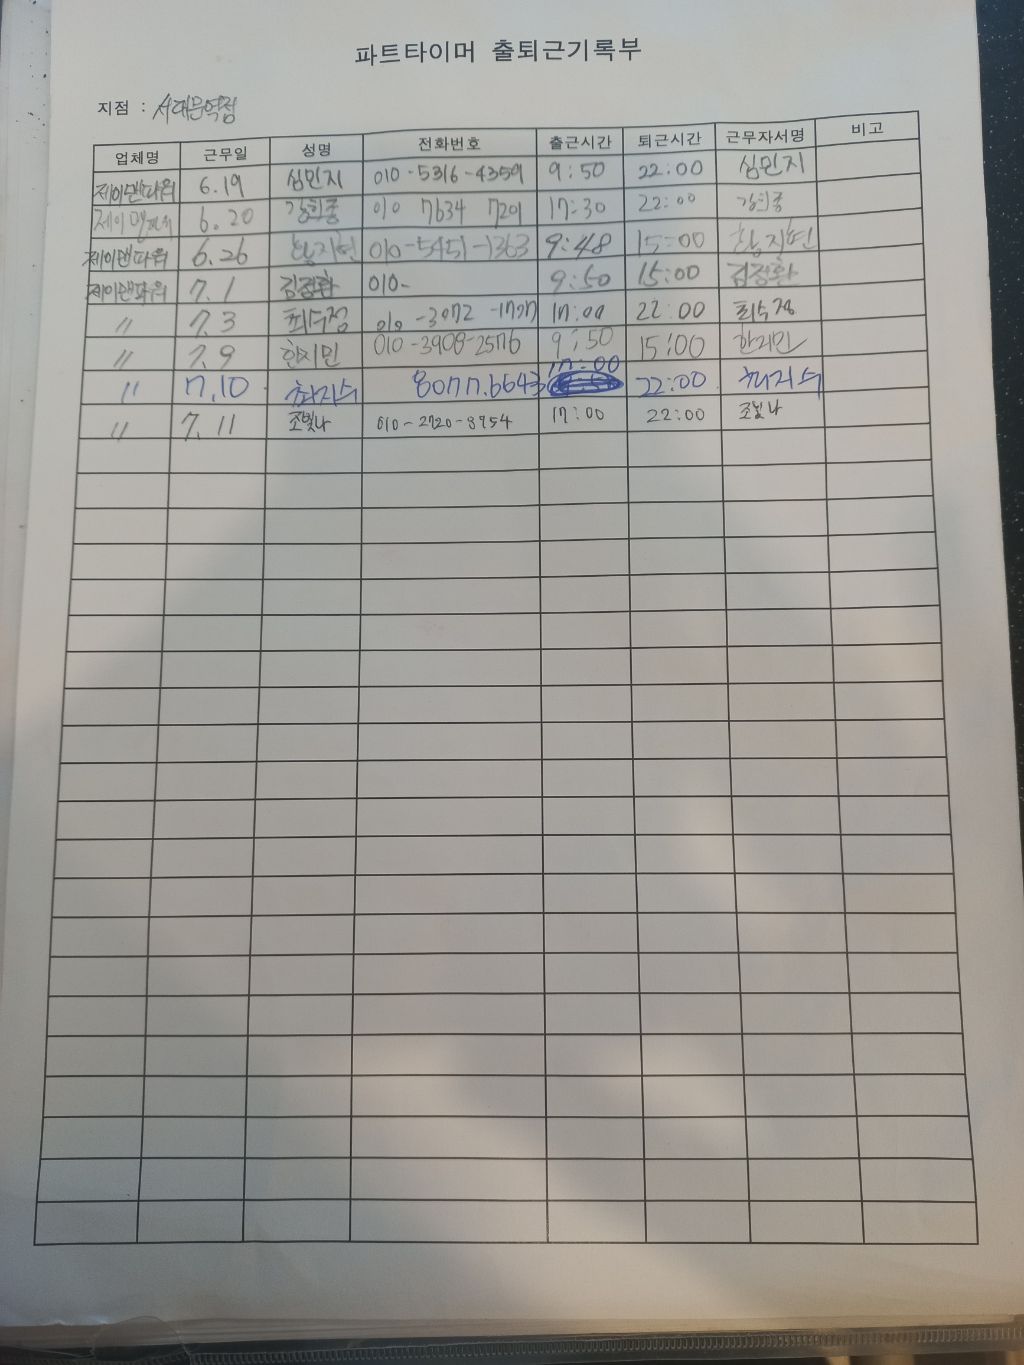 파트타이머 출퇴근기록부
지점 : 서대문역점
업체명 근무일 성명 전화번호 출근시간 퇴근시간 근무자서명 비고
제이맨파워 6.19 심민지 010-5316-4359 9:50 22:00 심민지
제이맨파워 6.20 김희종 010 7634 7201 17:30 22:00 김희종
제이맨파워 6.26 황지현 010-5451-1363 9:48 15:00 황지현
제이맨파워 7.1 김정환 010- 9:50 15:00 김정환
〃 7.3 최수정 010-3072-1707 17:00 22:00 최수정
〃 7.9 한지민 010-3908-2576 9:50 15:00 한지민
〃 7.10 최지수 8077.6643 17:00 22:00 최지수
〃 7.11 조빛나 010-2720-8954 17:00 22:00 조빛나